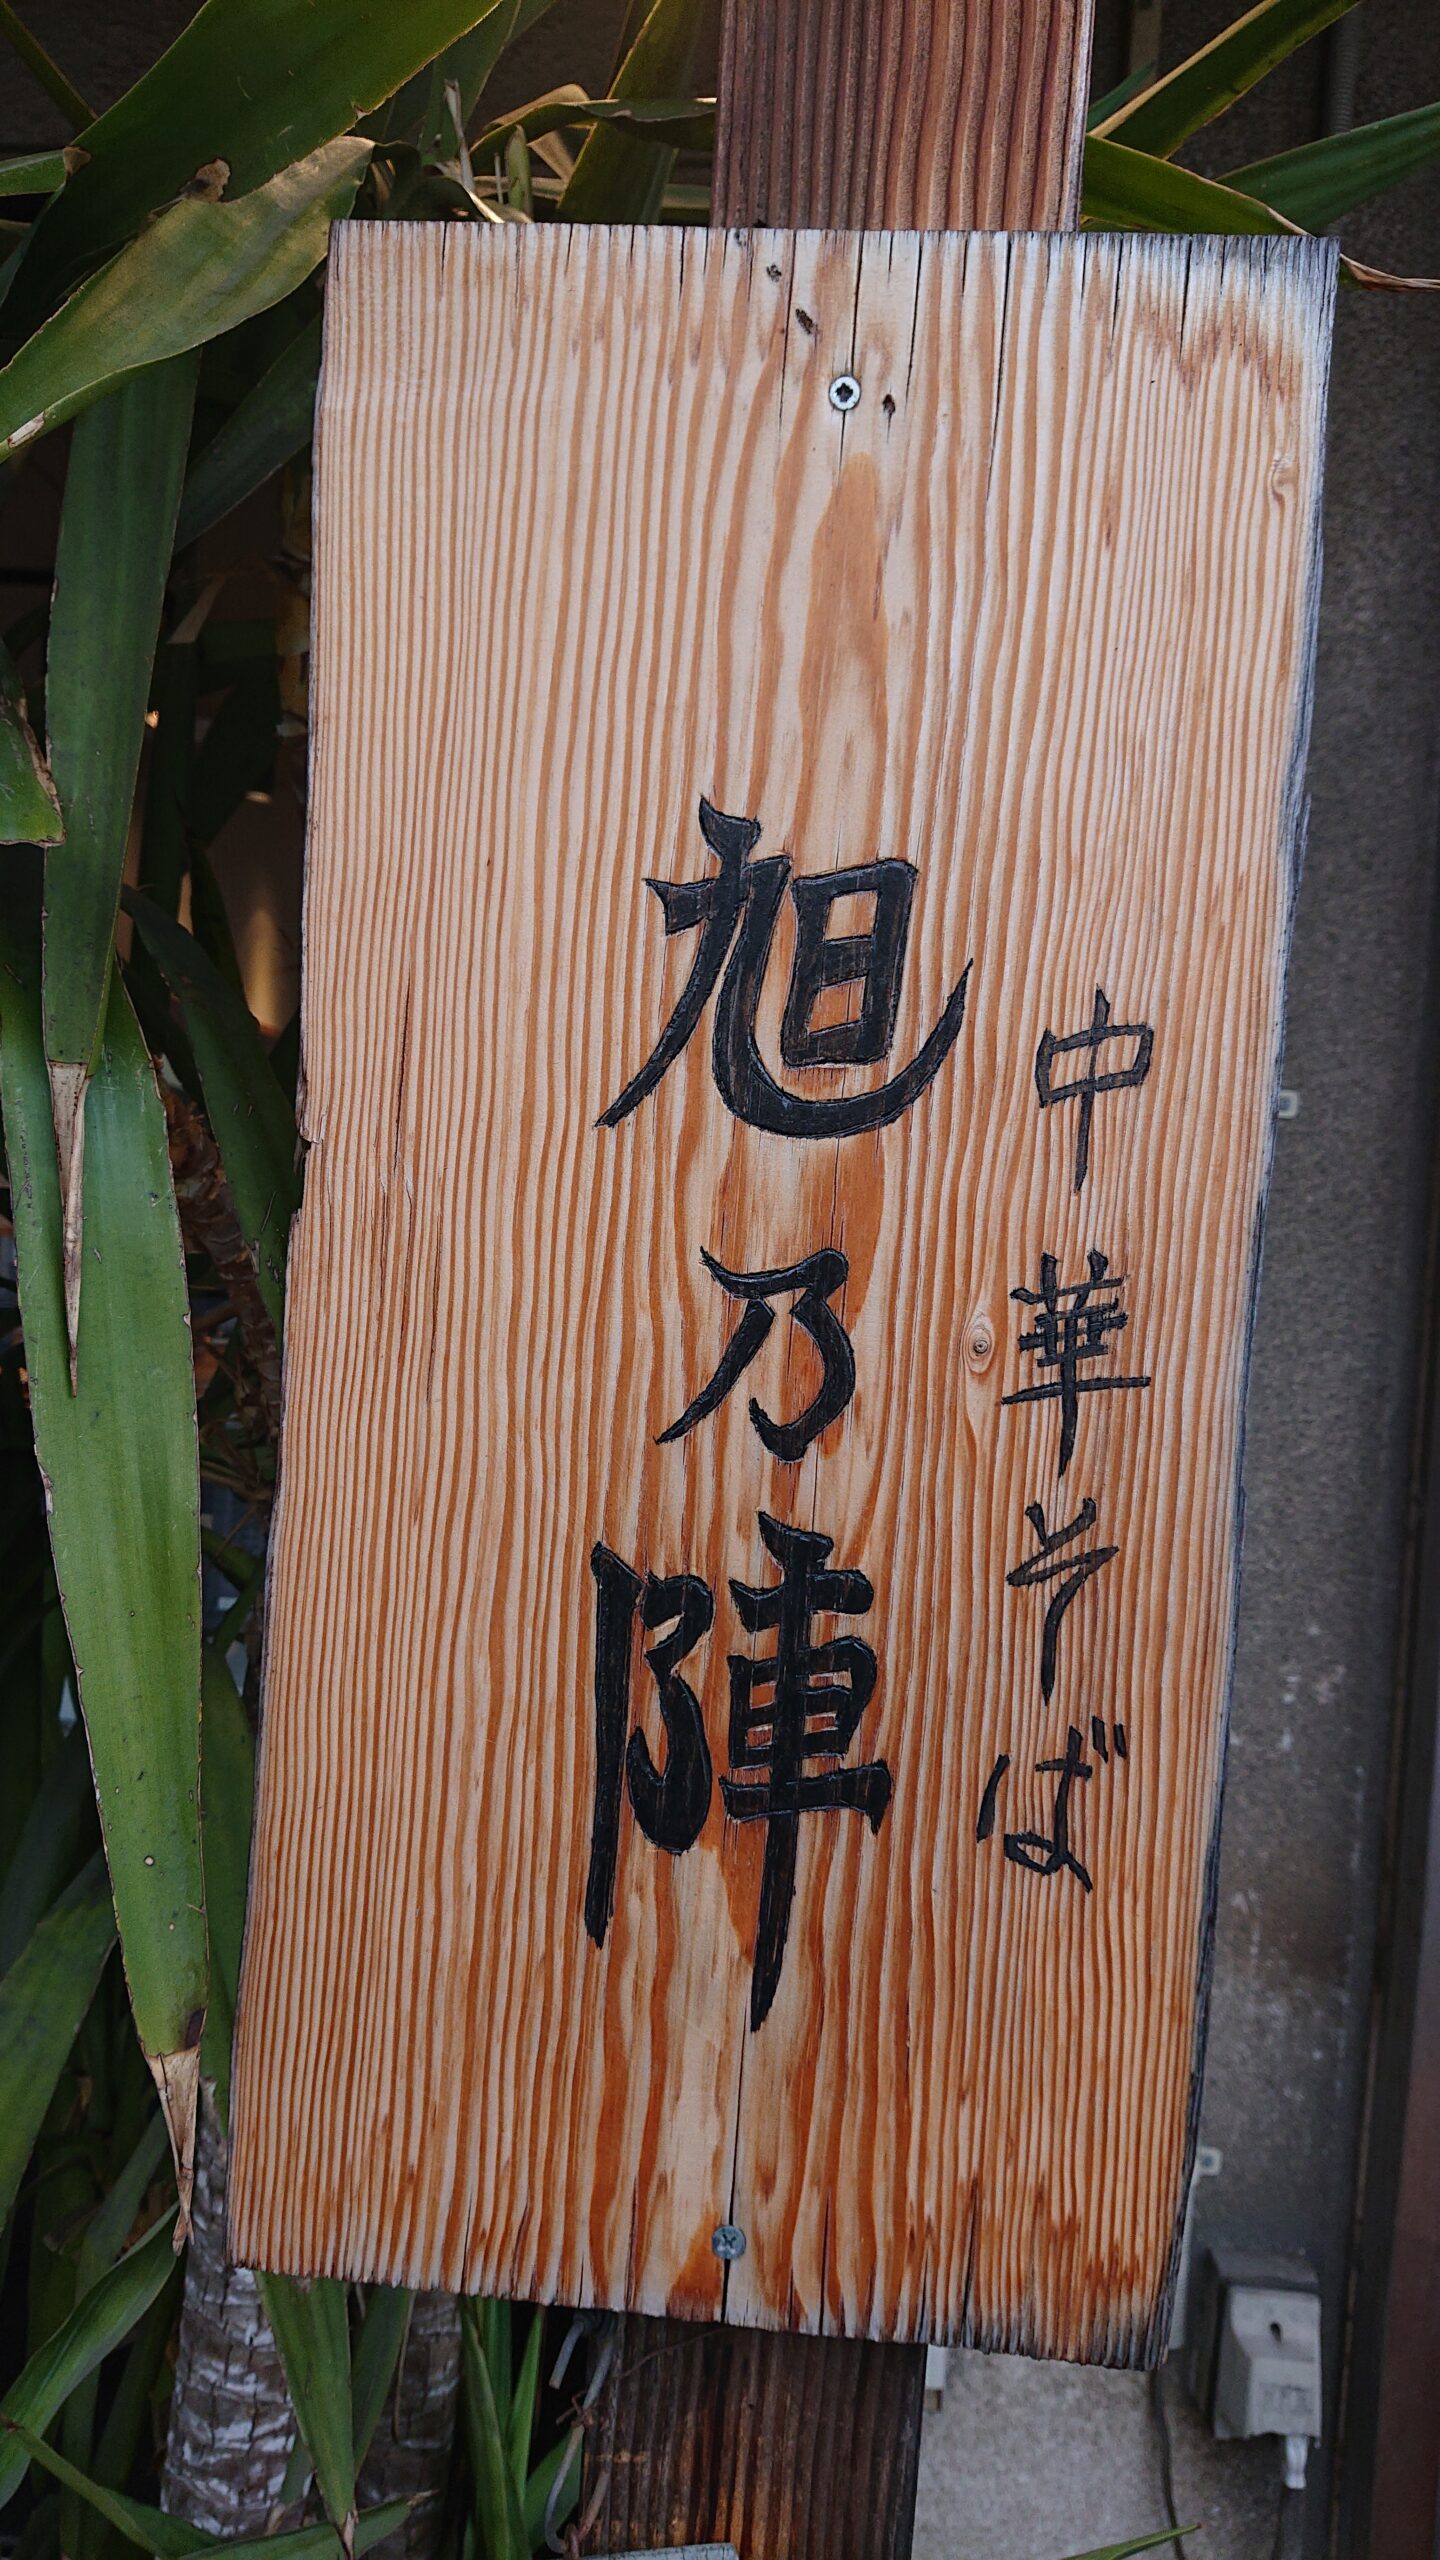 中華そば
旭乃陣